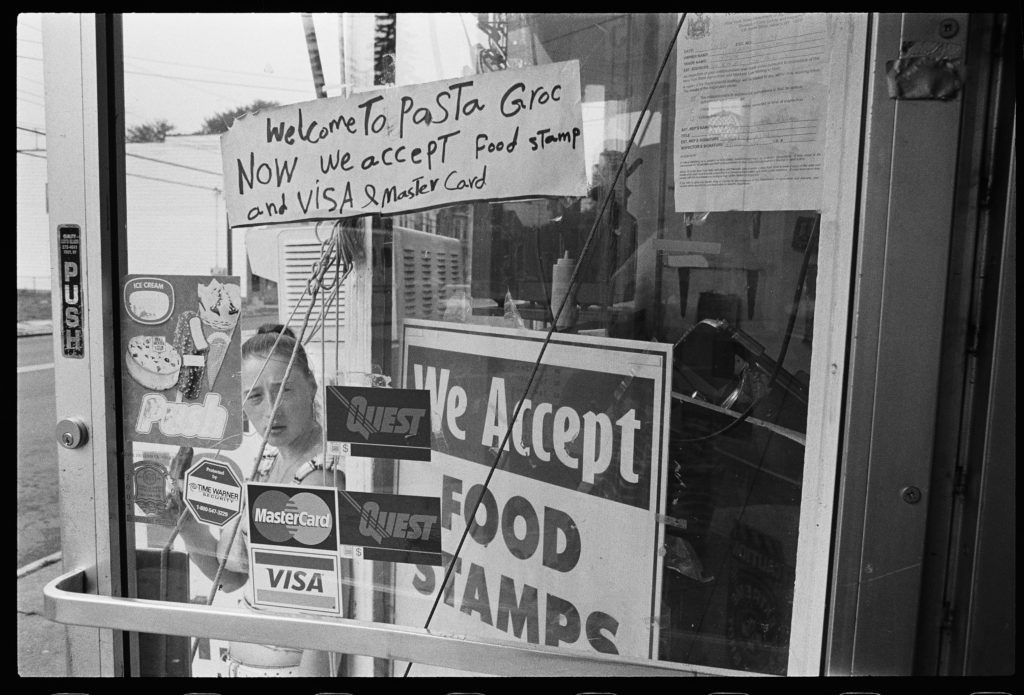 WelcomeTo PASTA Groc
NOW we accepT Food stamp
and VISA & Master Card
PUSH
ICE CREAM
Push
Protected
by
TIME WARNER
SECURITY
1-800-547-3229
QUEST
MasterCard
VISA
QUEST
We Accept
FOOD
STAMPS